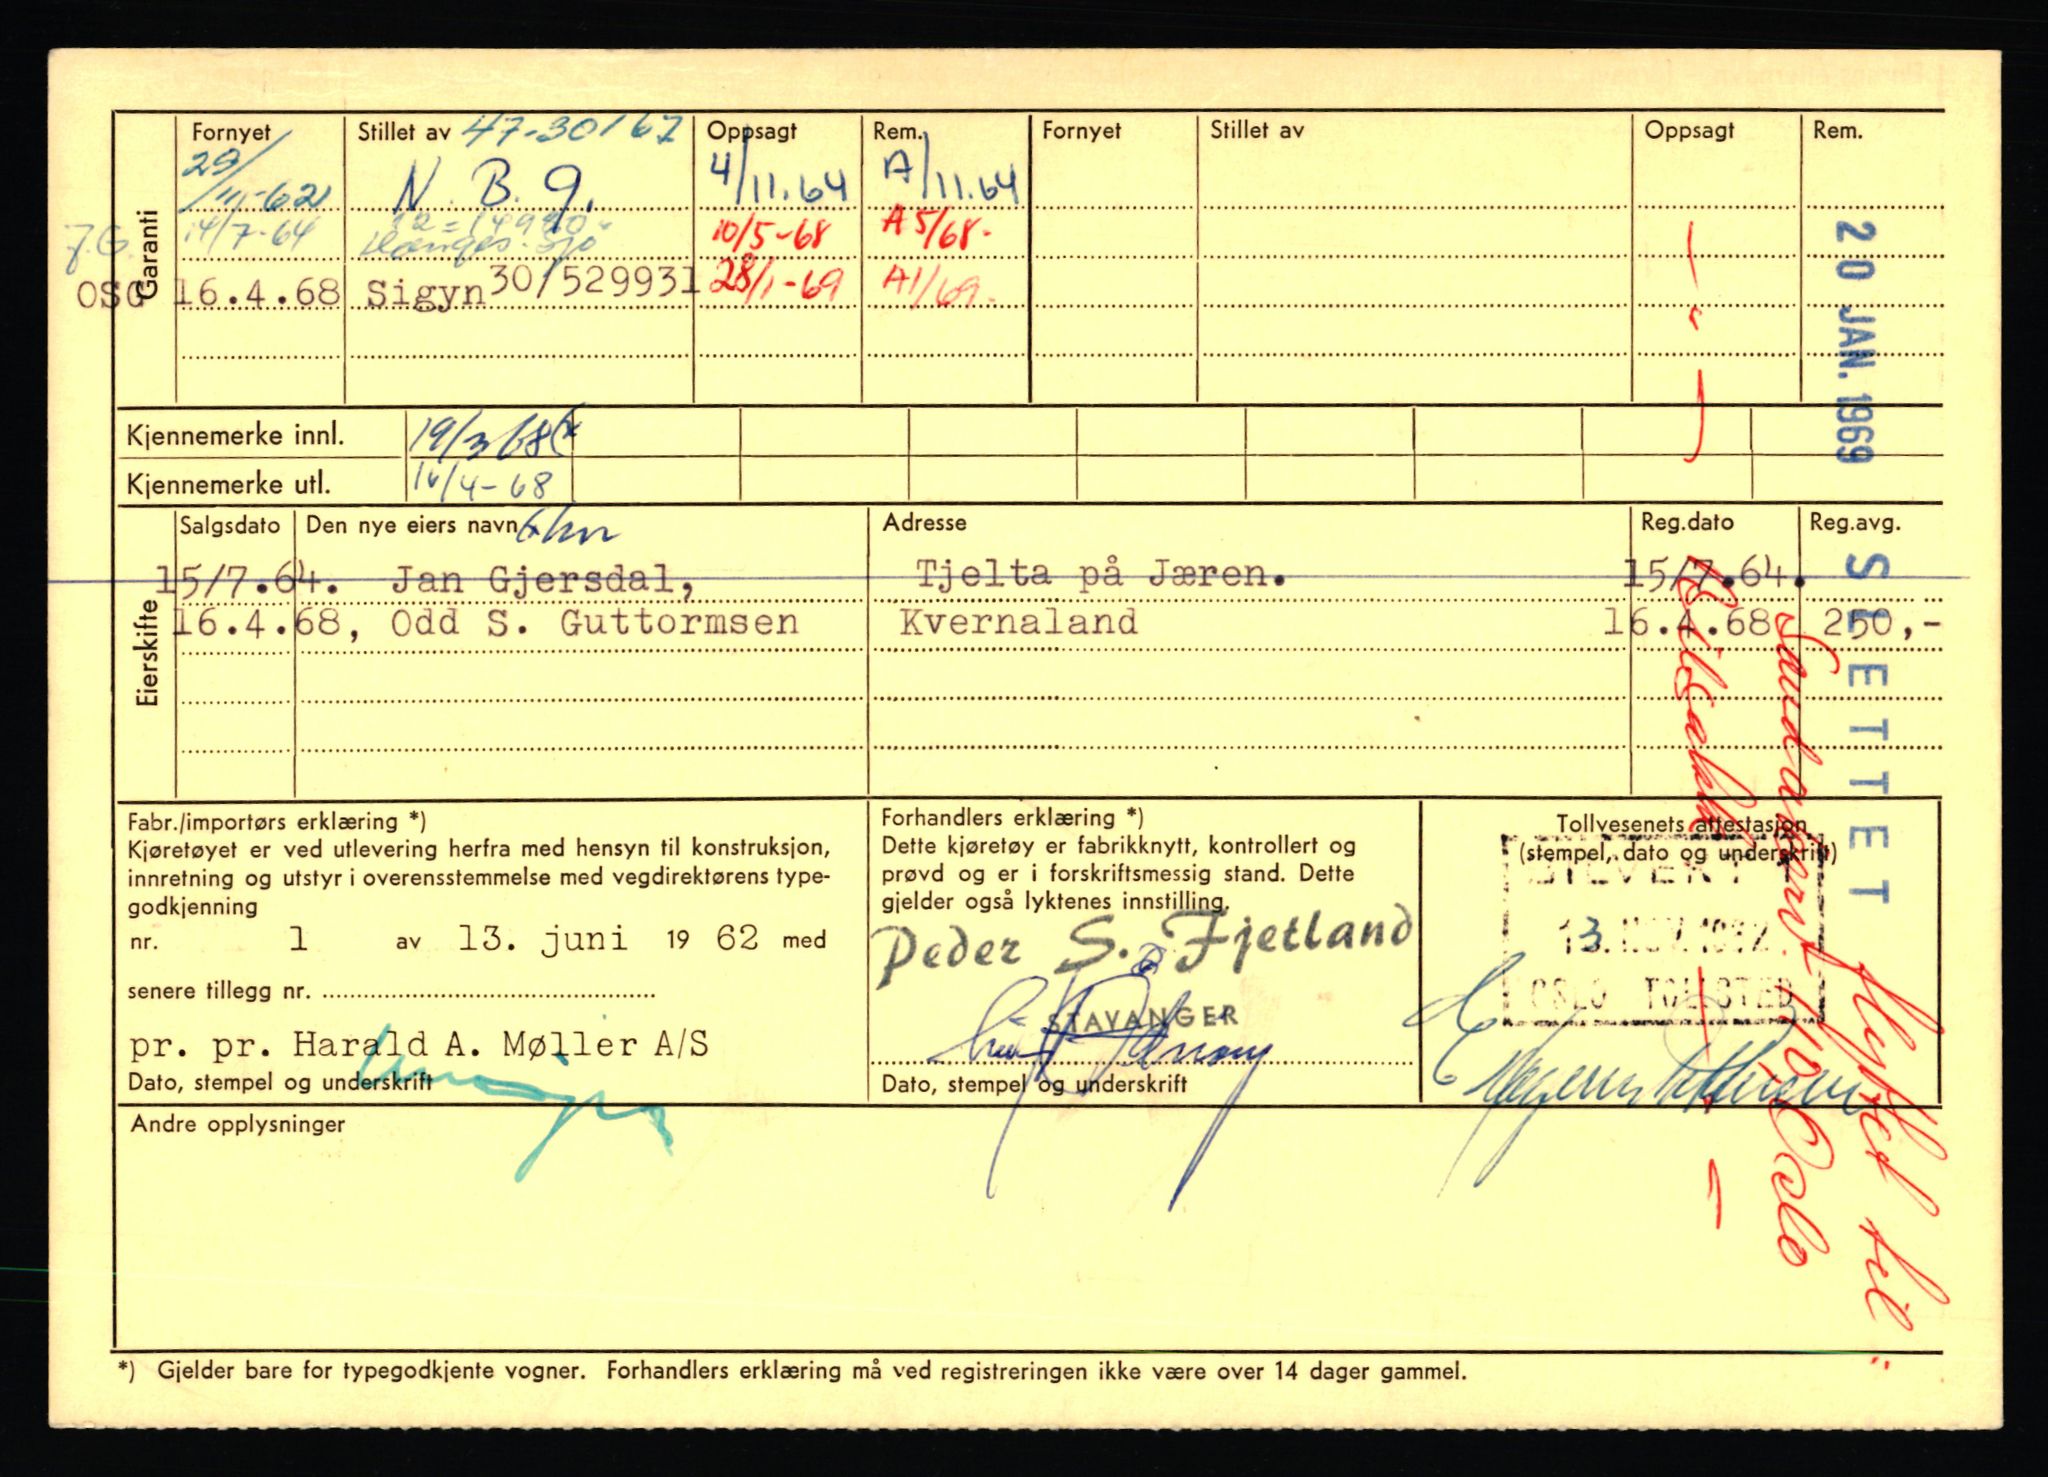 Garanti
Fornyet Stillet av 47-30167 Oppsagt Rem. Fornyet Stillet av Oppsagt Rem.
29/11-62 N. B. 9. 4/11.64 A/11.64
J.G. 14/7-64 12=14990 10/5-68 A5/68-
OSG 16.4.68 Sigyn 30/529931 28/1-69 A1/69-
Kjennemerke innl. 19/3 68
Kjennemerke utl. 16/4-68
Eierskifte
Salgsdato Den nye eiers navn Adresse Reg.dato Reg.avg.
15/7.64. Jan Gjersdal, Tjelta på Jæren. 15/7.64.
16.4.68, Odd S. Guttormsen Kvernaland 16.4.68 250,-
20 JAN. 1969
SLETTET
flyttet til
Oslo
Fabr./importørs erklæring *)
Kjøretøyet er ved utlevering herfra med hensyn til konstruksjon,
innretning og utstyr i overensstemmelse med vegdirektørens type-
godkjenning
nr. 1 av 13. juni 19 62 med
senere tillegg nr.
pr. pr. Harald A. Møller A/S
Dato, stempel og underskrift
Forhandlers erklæring *)
Dette kjøretøy er fabrikknytt, kontrollert og
prøvd og er i forskriftsmessig stand. Dette
gjelder også lyktenes innstilling.
Peder S. Fjetland
STAVANGER
Dato, stempel og underskrift
Tollvesenets attestasjon
(stempel, dato og underskrift)
13. NOV. 1962
OSLO TOLLSTED
Andre opplysninger
*) Gjelder bare for typegodkjente vogner. Forhandlers erklæring må ved registreringen ikke være over 14 dager gammel.